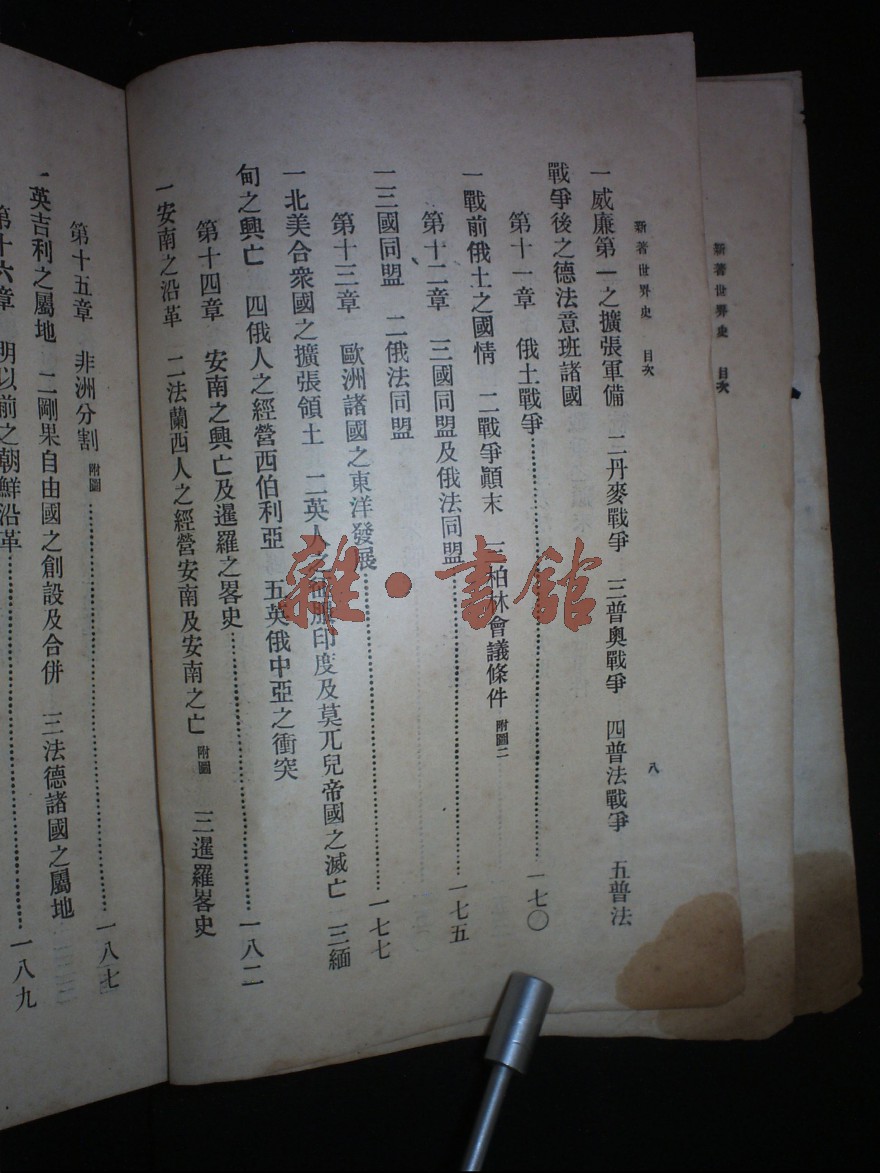 新著世界史 目次
新著世界史 目次 八
一威廉第一之擴張軍備 二丹麥戰爭 三普奧戰爭 四普法戰爭 五普法
戰爭後之德法意班諸國
第十一章 俄土戰爭⋯⋯⋯⋯一七〇
一戰前俄土之國情 二戰爭顛末 三柏林會議條件 附圖二
第十二章 三國同盟及俄法同盟⋯⋯⋯⋯一七五
一三國同盟 二俄法同盟
第十三章 歐洲諸國之東洋發展⋯⋯⋯⋯一七七
一北美合衆國之擴張領土 二英人之征服印度及莫兀兒帝國之滅亡 三緬
甸之興亡 四俄人之經營西伯利亞 五英俄中亞之衝突
第十四章 安南之興亡及暹羅之畧史⋯⋯⋯⋯一八二
一安南之沿革 二法蘭西人之經營安南及安南之亡 附圖 三暹羅畧史
第十五章 非洲分割 附圖⋯⋯⋯⋯一八七
一英吉利之屬地 二剛果自由國之創設及合併 三法德諸國之屬地
第十六章 明以前之朝鮮沿革⋯⋯⋯⋯一八九
雜·書館